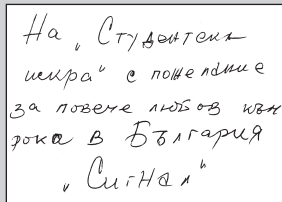 На „Студентска
искра“ с пожелание
за повече любов към
рока в България
„Сигнал“